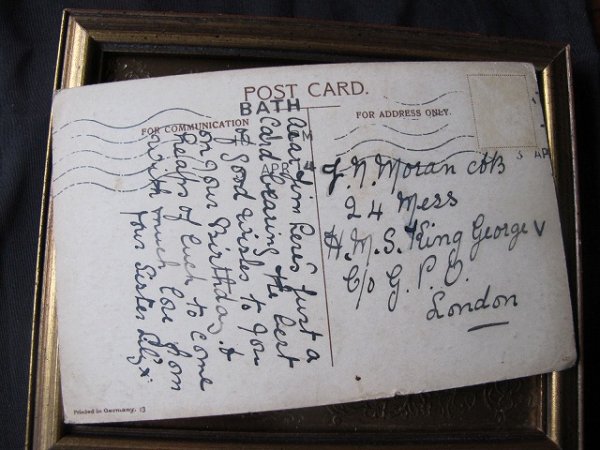 POST CARD.
BATH
FOR COMMUNICATION
FOR ADDRESS ONLY.
Dear Jim Here's Just a
Card bearing the Best
of Good wishes to You
on Your Birthday &
Heaps of Luck to Come
with much Love from
Your Sister Lily x
J. N. Moran
24 Mess
H. M. S. King George V
C/o G. P. O.
London
Printed in Germany. 13